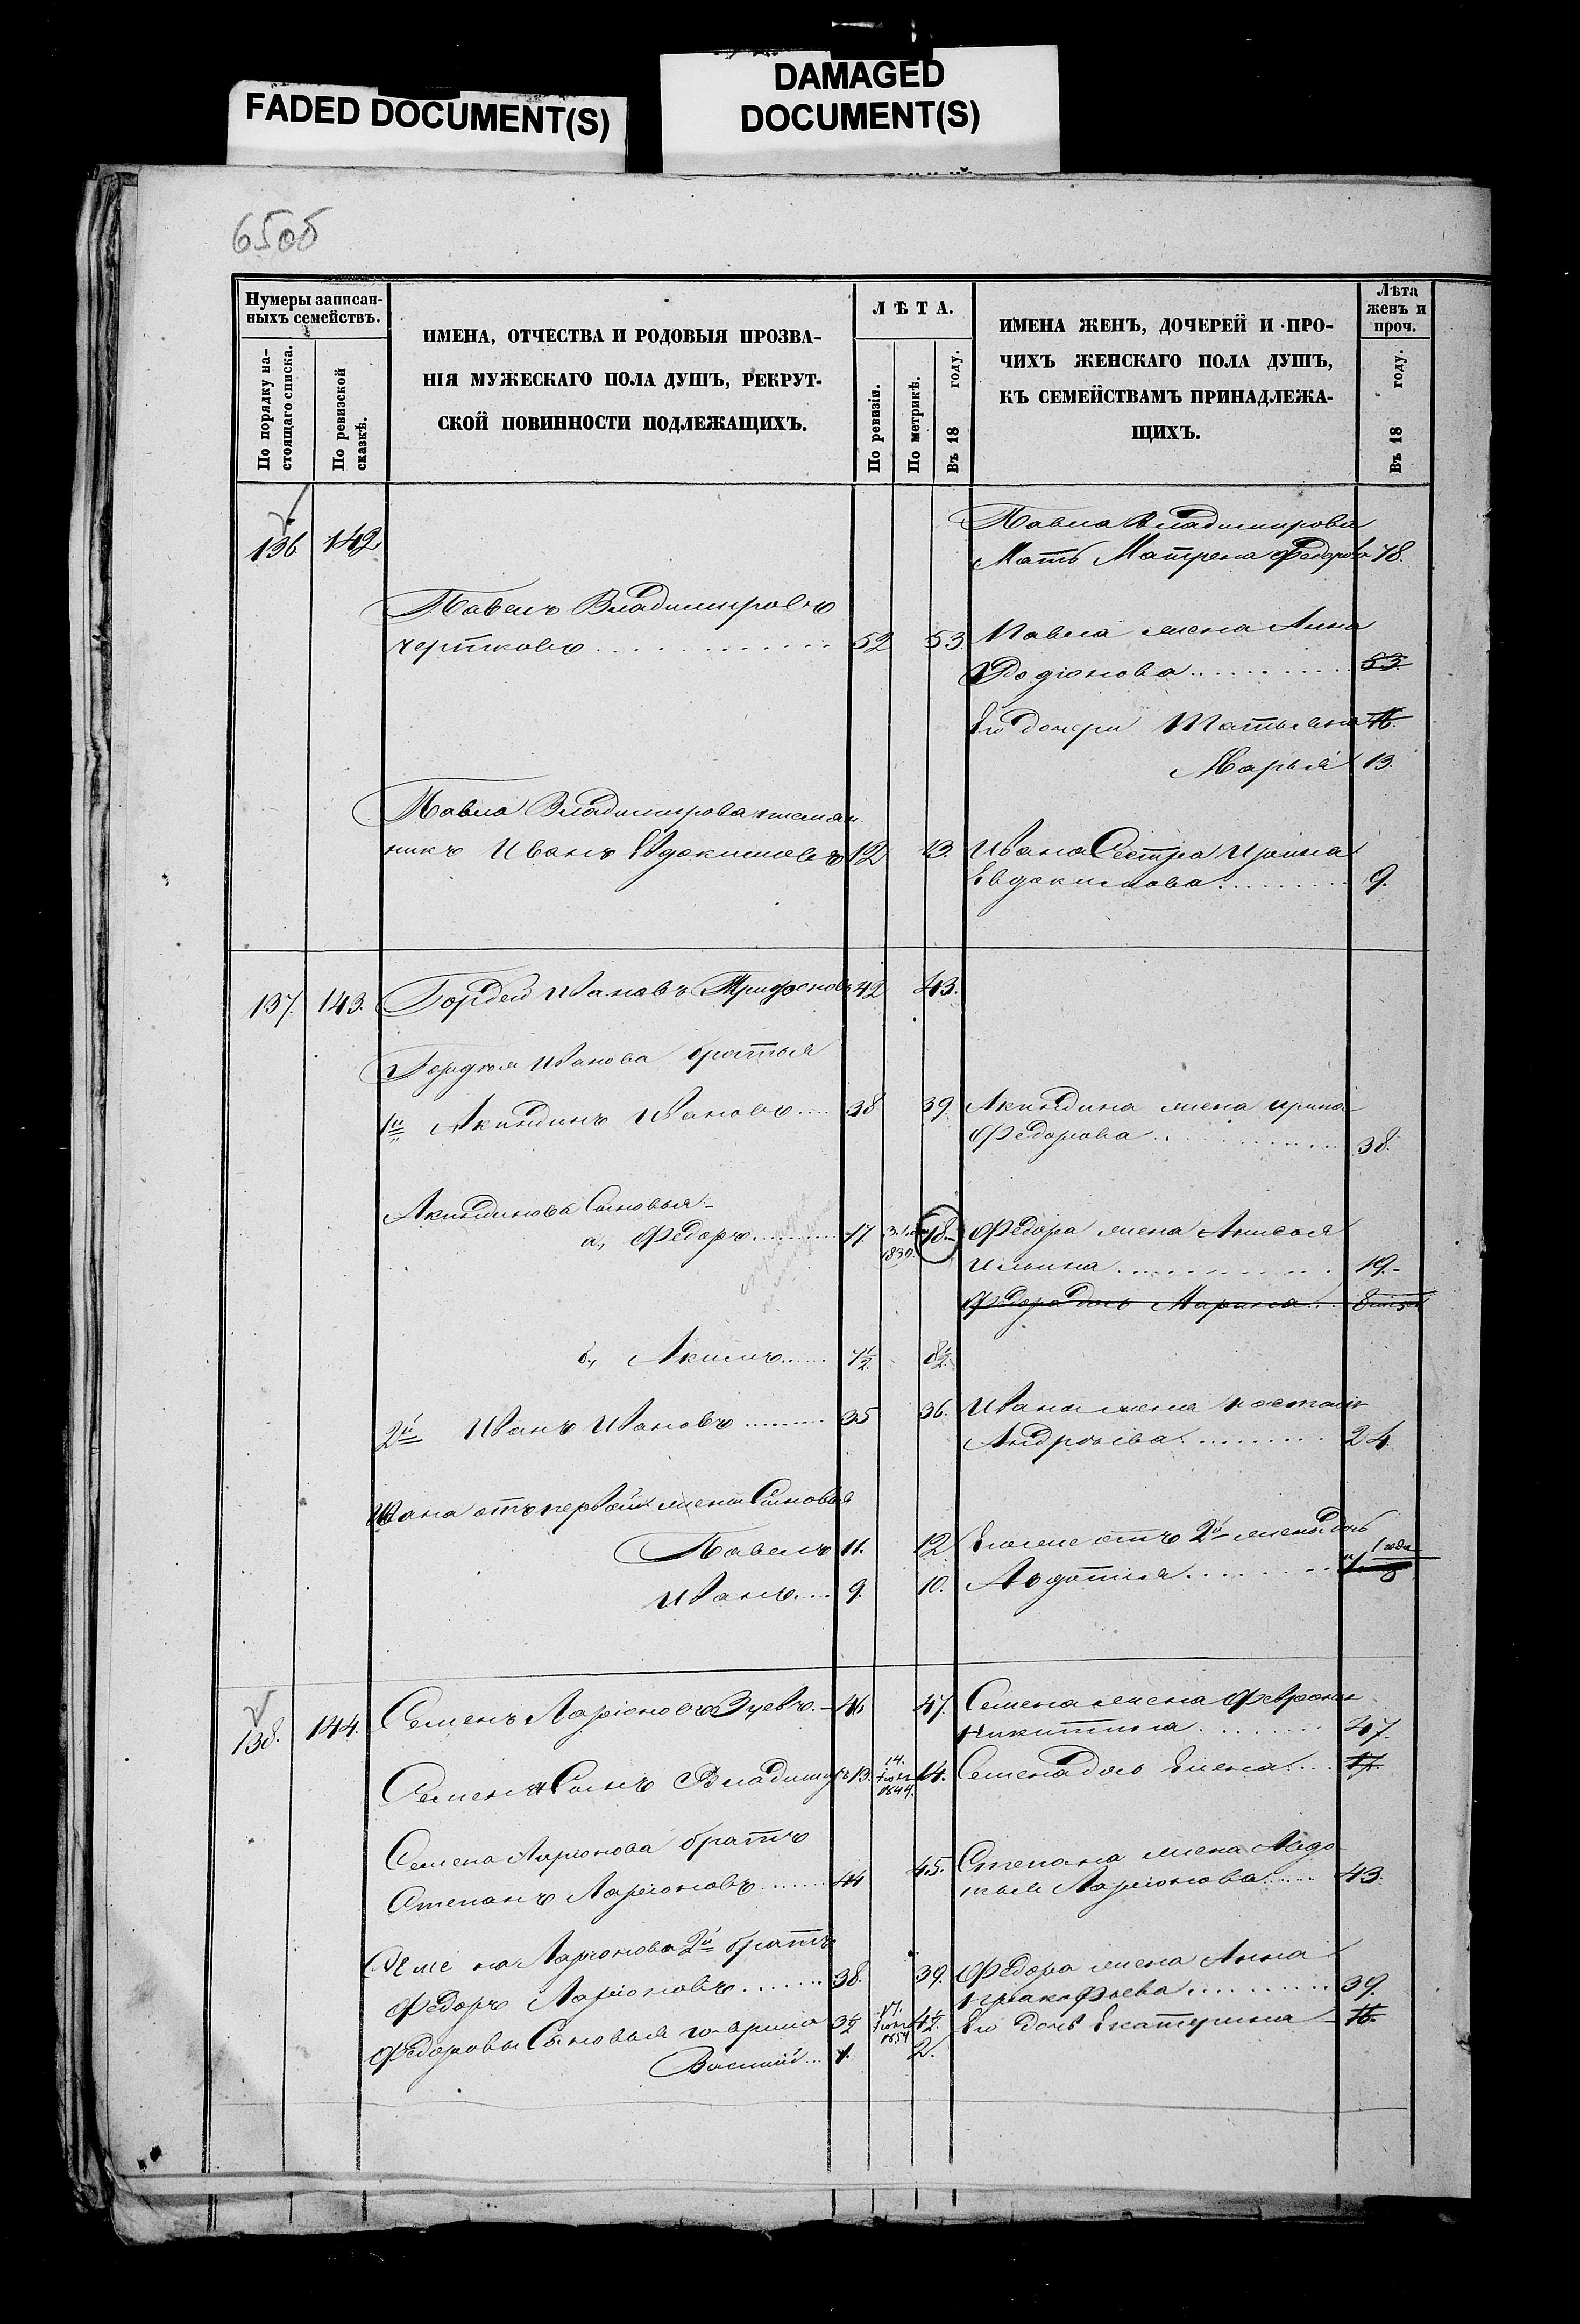 FADED DOCUMENT(S)
DAMAGED
DOCUMENT(S)
650б
Нумеры записан-
ныхъ семействъ.
По порядку на-
стоящаго списка.
По ревизской
сказкѣ.
ИМЕНА, ОТЧЕСТВА И РОДОВЫЯ ПРОЗВА-
НІЯ МУЖЕСКАГО ПОЛА ДУШЪ, РЕКРУТ-
СКОЙ ПОВИННОСТИ ПОДЛЕЖАЩИХЪ.
ЛѢТА.
По ревизіи.
По метрикѣ.
Въ 18 году.
ИМЕНА ЖЕНЪ, ДОЧЕРЕЙ И ПРО-
ЧИХЪ ЖЕНСКАГО ПОЛА ДУШЪ,
КЪ СЕМЕЙСТВАМЪ ПРИНАДЛЕЖА-
ЩИХЪ.
Лѣта
женъ и
проч.
Въ 18 году.
136 142
Павла Владимирова
Мать Матрена Федорова 78.
Павелъ Владимировъ
Чертковъ 52 53.
Павла жена Анна
Родіонова 53
Его дочери Татьяна 16.
Марья 13.
Павла Владимирова племян
никъ Иванъ Евдокимовъ 12 13.
Ивана Сестра Ирина
Евдокимова 9.
137. 143. Гордей Ивановъ Трифоновъ 42 43.
Гордѣя Иванова братья
1й Акиндинъ Ивановъ 38 39.
Акиндина жена Ирина
Федорова 38.
Акиндиновы Сыновья
а., Федоръ 17 1830. 18.
Федора жена Анисья
Ильина 19.
Федора дочь Марина
б., Акимъ 7½ 8½
2й Иванъ Ивановъ 35 36.
Ивана жена Настасья
Андреева 24.
Ивана отъ первой жены Сыновья
Павелъ 11. 12
Иванъ 9. 10.
Его же отъ 2й жены дочь
Авдотья 1 года
138. 144. Семенъ Ларіоновъ Зуевъ 46 47.
Семена жена Февронья
Никитина 47.
Семена Сынъ Владимиръ 13. 14. Іюля 1844. 14.
Семена дочь Елена 17.
Семена Ларіонова братъ
Степанъ Ларіоновъ 44 45.
Степана жена Авдо
тья Ларіонова 43.
Семена Ларіонова 2й братъ
Федоръ Ларіоновъ 38. 39.
Федора жена Анна
Прокофьева 39.
Федоровы Сыновья Гаврило 3½ 17. 1854 4½.
Василій 1. 2.
Его дочь Екатерина 16.